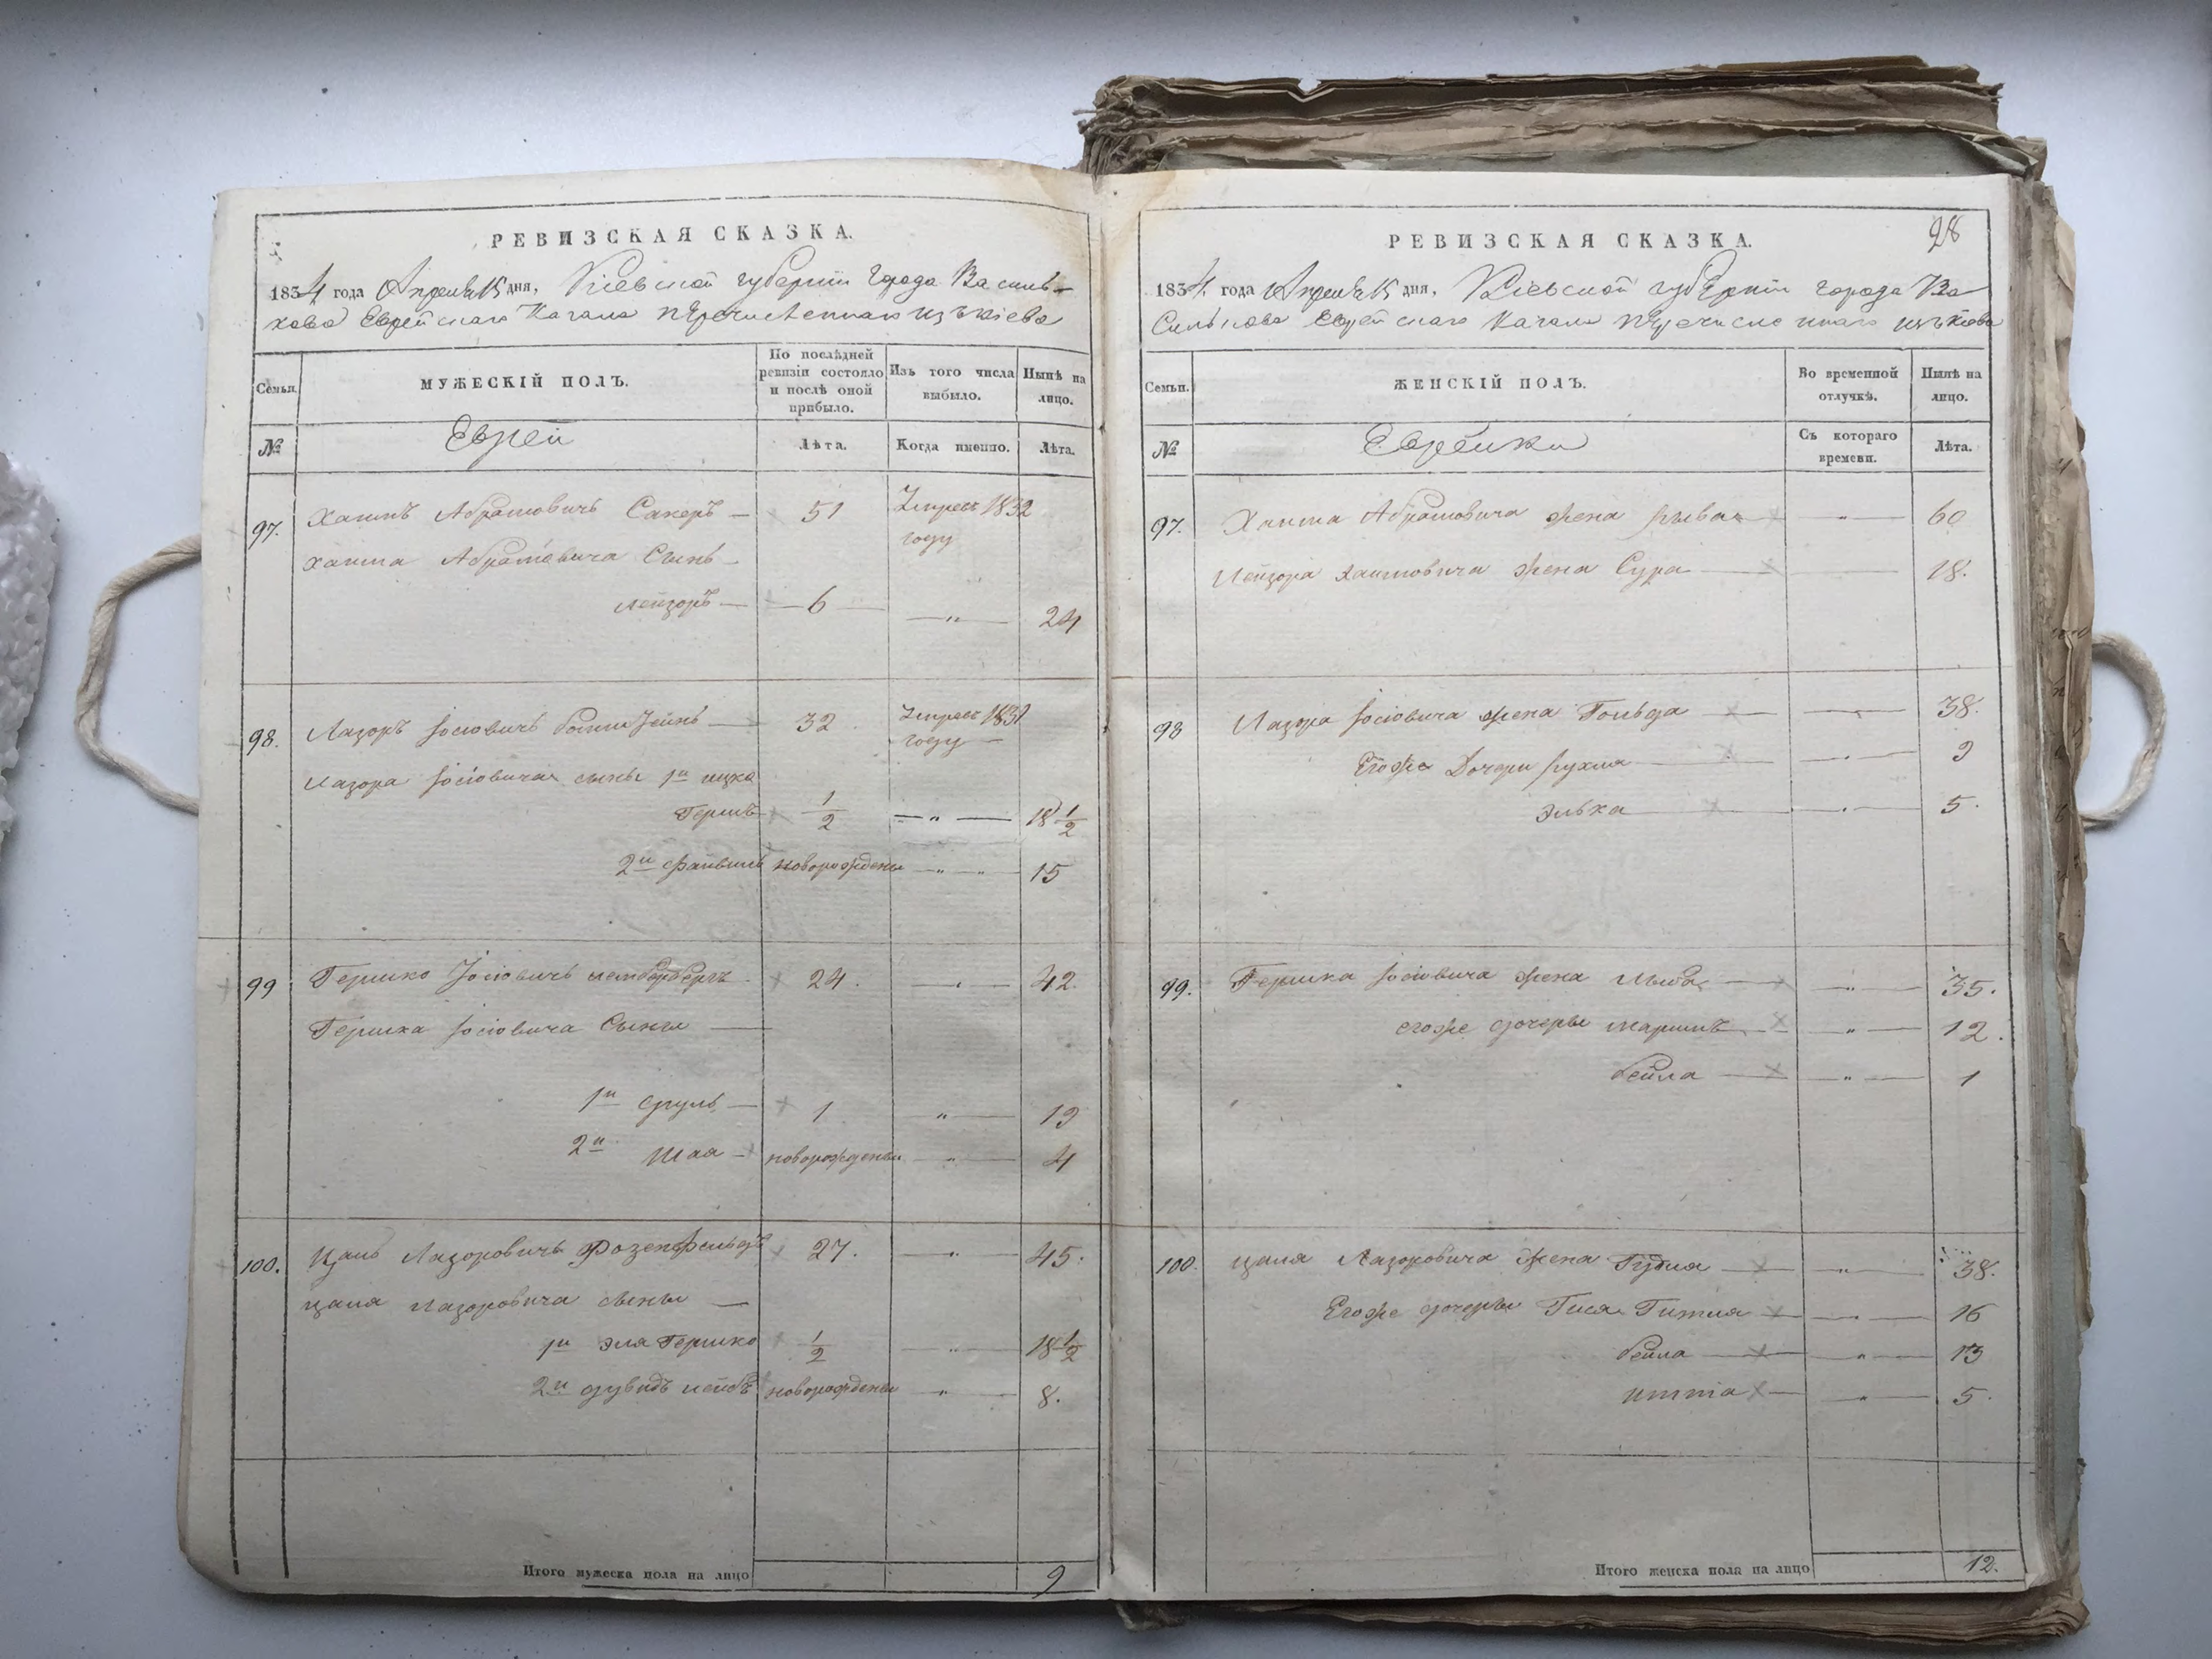 РЕВИЗСКАЯ СКАЗКА.
1834 года Апреля 15 дня, Кіевской губерніи города Василь-
кова Еврейскаго Кагала перечисленнаго изъ Кіева
Семьи.
МУЖЕСКІЙ ПОЛЪ.
По послѣдней ревизіи состояло и послѣ оной прибыло.
Изъ того числа выбыло.
Нынѣ на лицо.
№
Еврей
Лѣта.
Когда именно.
Лѣта.
97. Хаимъ Абрамовичъ Сакеръ — 51 Умре 1832 году
Хаима Абрамовича Сынъ
Лейзоръ — 6 — " — 24
98. Лазоръ Іосіовичъ — 32 Умре 183 году
Лазора Іосіовича сыны 1й Ицко
Гершъ 1/2 — " — 18 1/2
2й Файвишъ новорожденъ — " — 15
99 Гершко Іосіовичъ 24. — " — 42.
Гершка Іосіовича Сыны —
1й Сруль — 1 " — 19
2й Шая — новорожденъ — " — 4
100. Цаль Лазоровичъ Розенфельдъ 27. — " — 45.
Цаля Лазоровича сыны —
1й Эля Гершко 1/2 — " — 18 1/2
2й Дувидъ Лейбъ новорожденъ — " — 8.
Итого мужеска пола на лицо 9
28
РЕВИЗСКАЯ СКАЗКА.
1834 года Апреля 15 дня, Кіевской губерніи города Ва
силькова Еврейскаго Кагала перечисленнаго изъ Кіева
Семьи.
ЖЕНСКІЙ ПОЛЪ.
Во временной отлучкѣ.
Нынѣ на лицо.
№
Еврейки
Съ котораго времени.
Лѣта.
97. Хаима Абрамовича жена Рыва — " — 60
Лейзора Хаимовича жена Сура — 18.
98 Лазора Іосіовича жена Гольда — 38.
Его же Дочери Рухля — 9
Элька — 5.
99. Гершка Іосіовича жена Лыба — " — 35.
его же дочеры — " — 12.
Бейла — " — 1
100. Цаля Лазоровича жена Гудля — " — 38.
Его же дочеры Гися Гитля — 16
Бейла — " — 13
— " — 5.
Итого женска пола на лицо 12.